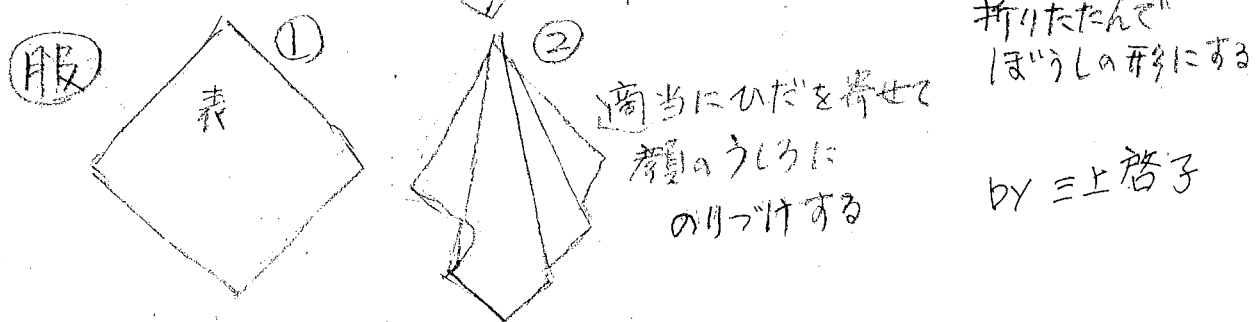 服
①
表
②
適当にひだを寄せて
顔のうしろに
のりづけする
折りたたんで
ぼうしの形にする
by 三上啓子